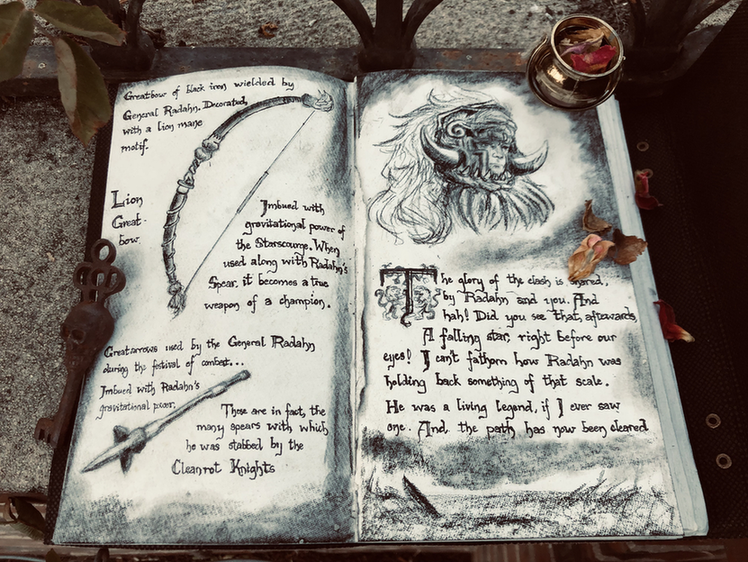 Greatbow of black iron wielded by
General Radahn. Decorated,
with a lion mane
motif.
Lion
Great-
bow
Imbued with
gravitational power of
the Starscourge. When
used along with Radahn's
Spear, it becomes a true
weapon of a champion.
Greatarrows used by the General Radahn
during the festival of combat...
Imbued with Radahn's
gravitational power.
These are in fact, the
many spears with which
he was stabbed by the
Cleanrot Knights
The glory of the clash is shared,
by Radahn and you. And
hah! Did you see that, afterwards,
A falling star, right before our
eyes! I can't fathom how Radahn was
holding back something of that scale.
He was a living legend, if I ever saw
one. And, the path has now been cleared